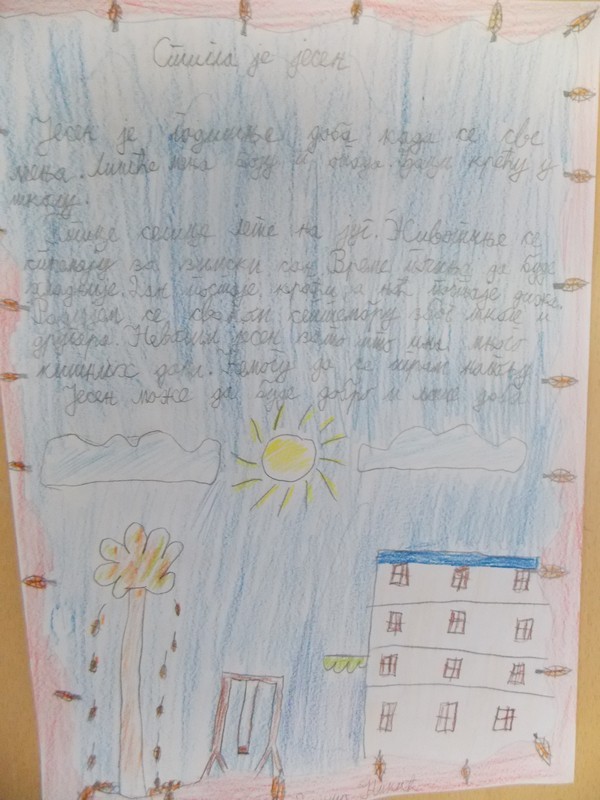 Стигла је јесен
Јесен је годишње доба када се све
мења. Лишће мења боју и опада. Ђаци крећу у
школу.
Птице селице лете на југ. Животиње се
спремају за зимски сан. Време почиње да буде
хладније. Дан постаје краћи а ноћ постаје дужа.
се сваки септембру због школе и
другара. Неволим јесен зато што има много
кишних дана. Немогу да се играм напољу.
Јесен може да буде добро и лоше доба.